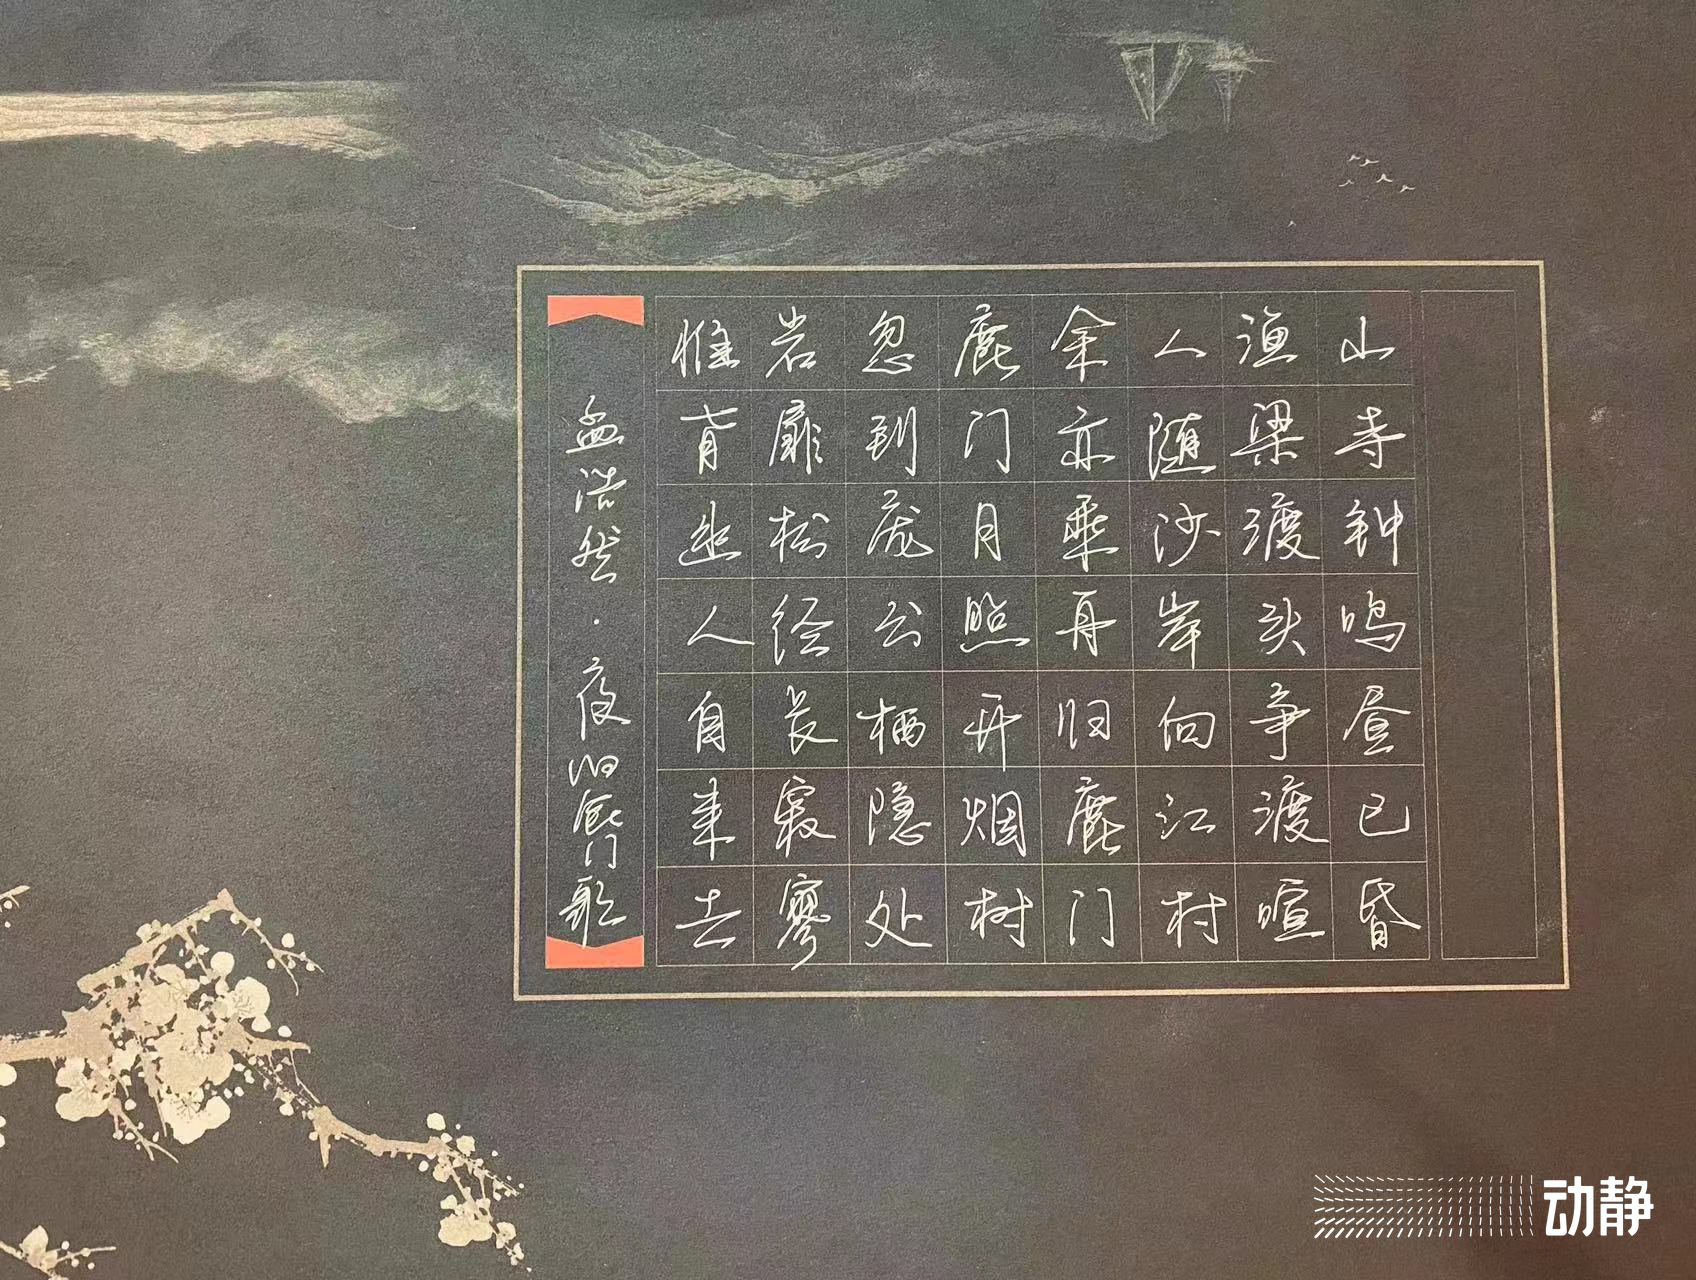 山寺钟鸣昼已昏
渔梁渡头争渡喧
人随沙岸向江村
余亦乘舟归鹿门
鹿门月照开烟树
忽到庞公栖隐处
岩扉松径长寂寥
惟有幽人自来去
孟浩然·夜归鹿门歌
动静